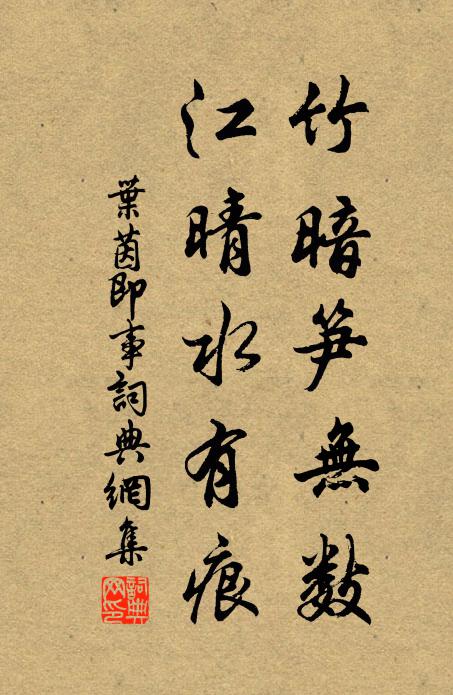 竹暗笋無数
江晴水有痕
葉茵即事詞典網集
詞典网印